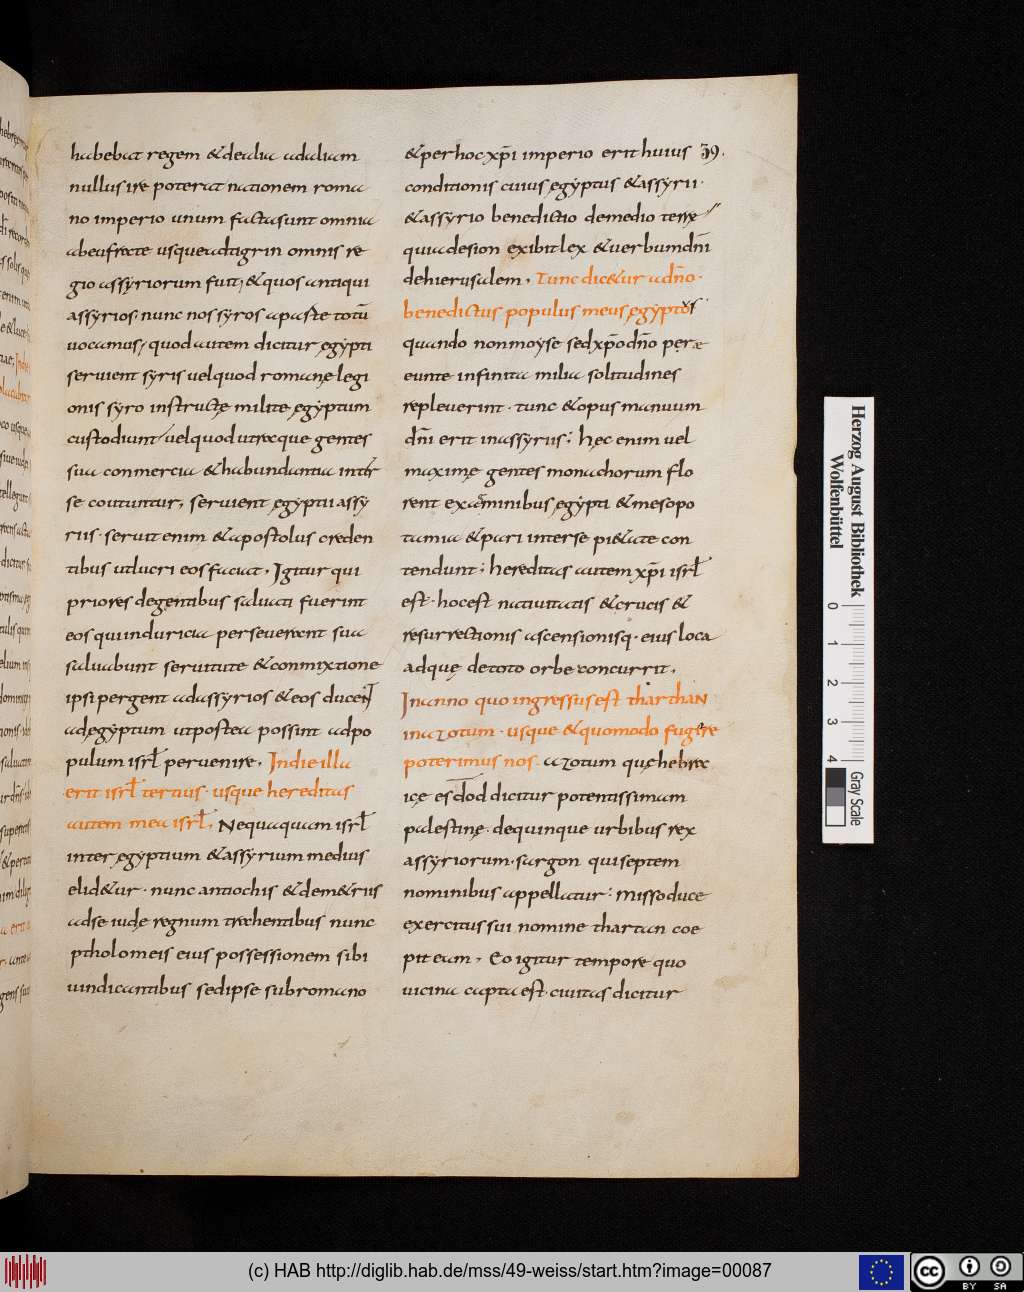 habebat regem &dealia adaliam
nullus ire poterat nationem roma
no imperio unum facta sunt omnia
abeufrate usque ad tigrin omnis re
gio assyriorum fuit, &quos antiqui
assyrios, nunc nos syros a parte totū
uocamus, quod autem dicitur ęgypti
seruient syris uel quod romanę legi
onis syro instructę milite ęgyptum
custodiunt, uel quod utręque gentes
sua conmercia &habundantia inter
se coutuntur, seruient ęgyptii assy
riis. seruit enim &apostolus creden
tibus ut lucri eos faciat. Igitur qui
priores degentibus saluati fuerint
eos qui induricia perseuerant sua
saluabunt seruitute &conmixtione
ipsi pergent adassyrios &eos ducent
adęgyptum ut postea possint adpo
pulum isrł peruenire. In die illa
erit isrł tertius. usque hereditas
autem mea isrł. Nequaquam isrł
inter ęgyptium &assyrium medius
elid&ur. nunc antiochis &dem&riis
adse iudę regnum trahentibus nunc
ptholomeis eius possessionem sibi
uindicantibus sed ipse sub romano
39.
&per hoc xp̄i imperio erit huius
conditionis cuius ęgyptus &assyrii.
&assyrio benedictio de medio terrę
quia desion exibit lex &uerbum dn̄i
dehierusalem. Tunc dic&ur adn̄o.
benedictus populus meus ęgyptos
quando non moyse sed xp̄o dn̄o peræ
eunte infinita milia solitudines
repleuerint. tunc &opus manuum
dn̄i erit in assyriis; hęc enim uel
maximę gentes monachorum flo
rent examinibus ęgypti &mesopo
tamia &pari inter se pi&ate con
tendunt; hereditas autem xp̄i isrł
est. hoc est natiuitatis &crucis &
resurrectionis ascensionisq. eius loca
adquę de toto orbe concurrit.
In anno quo ingressus est tharthaN
in azotum. usque &quomodo fugere
poterimus nos. azotum quę hebra
icę esdod dicitur potentissimam
palestinę. de quinque urbibus rex
assyriorum. sargon qui septem
nominibus appellatur. misso duce
exercitus sui nomine thartan coe
pit eam, Eo igitur tempore quo
uicina capta est ciuitas dicitur
Herzog August Bibliothek
Wolfenbüttel
0 1 2 3 4
Gray Scale
(c) HAB http://diglib.hab.de/mss/49-weiss/start.htm?image=00087
cc BY SA